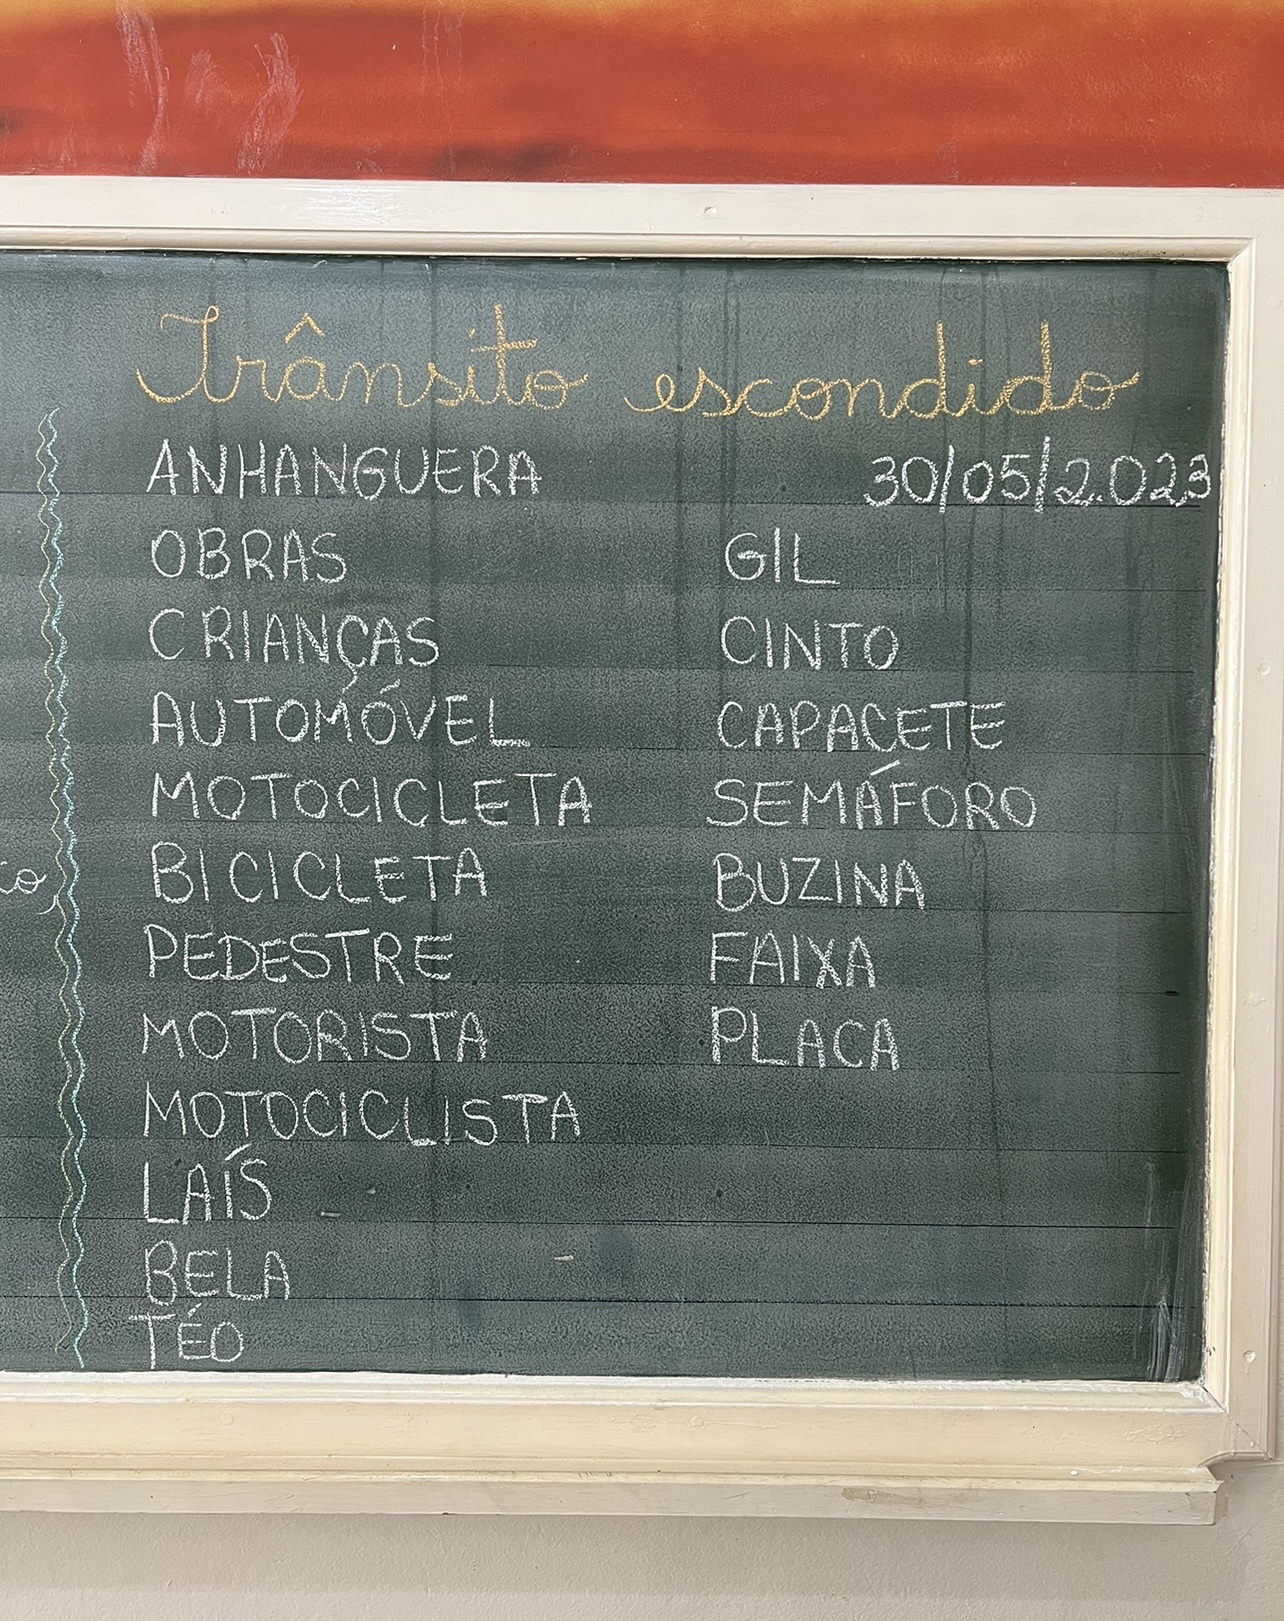 Trânsito escondido
ANHANGUERA
30/05/2.023
OBRAS
CRIANÇAS
AUTOMÓVEL
MOTOCICLETA
BICICLETA
PEDESTRE
MOTORISTA
MOTOCICLISTA
LAÍS
BELA
TÉO
GIL
CINTO
CAPACETE
SEMÁFORO
BUZINA
FAIXA
PLACA